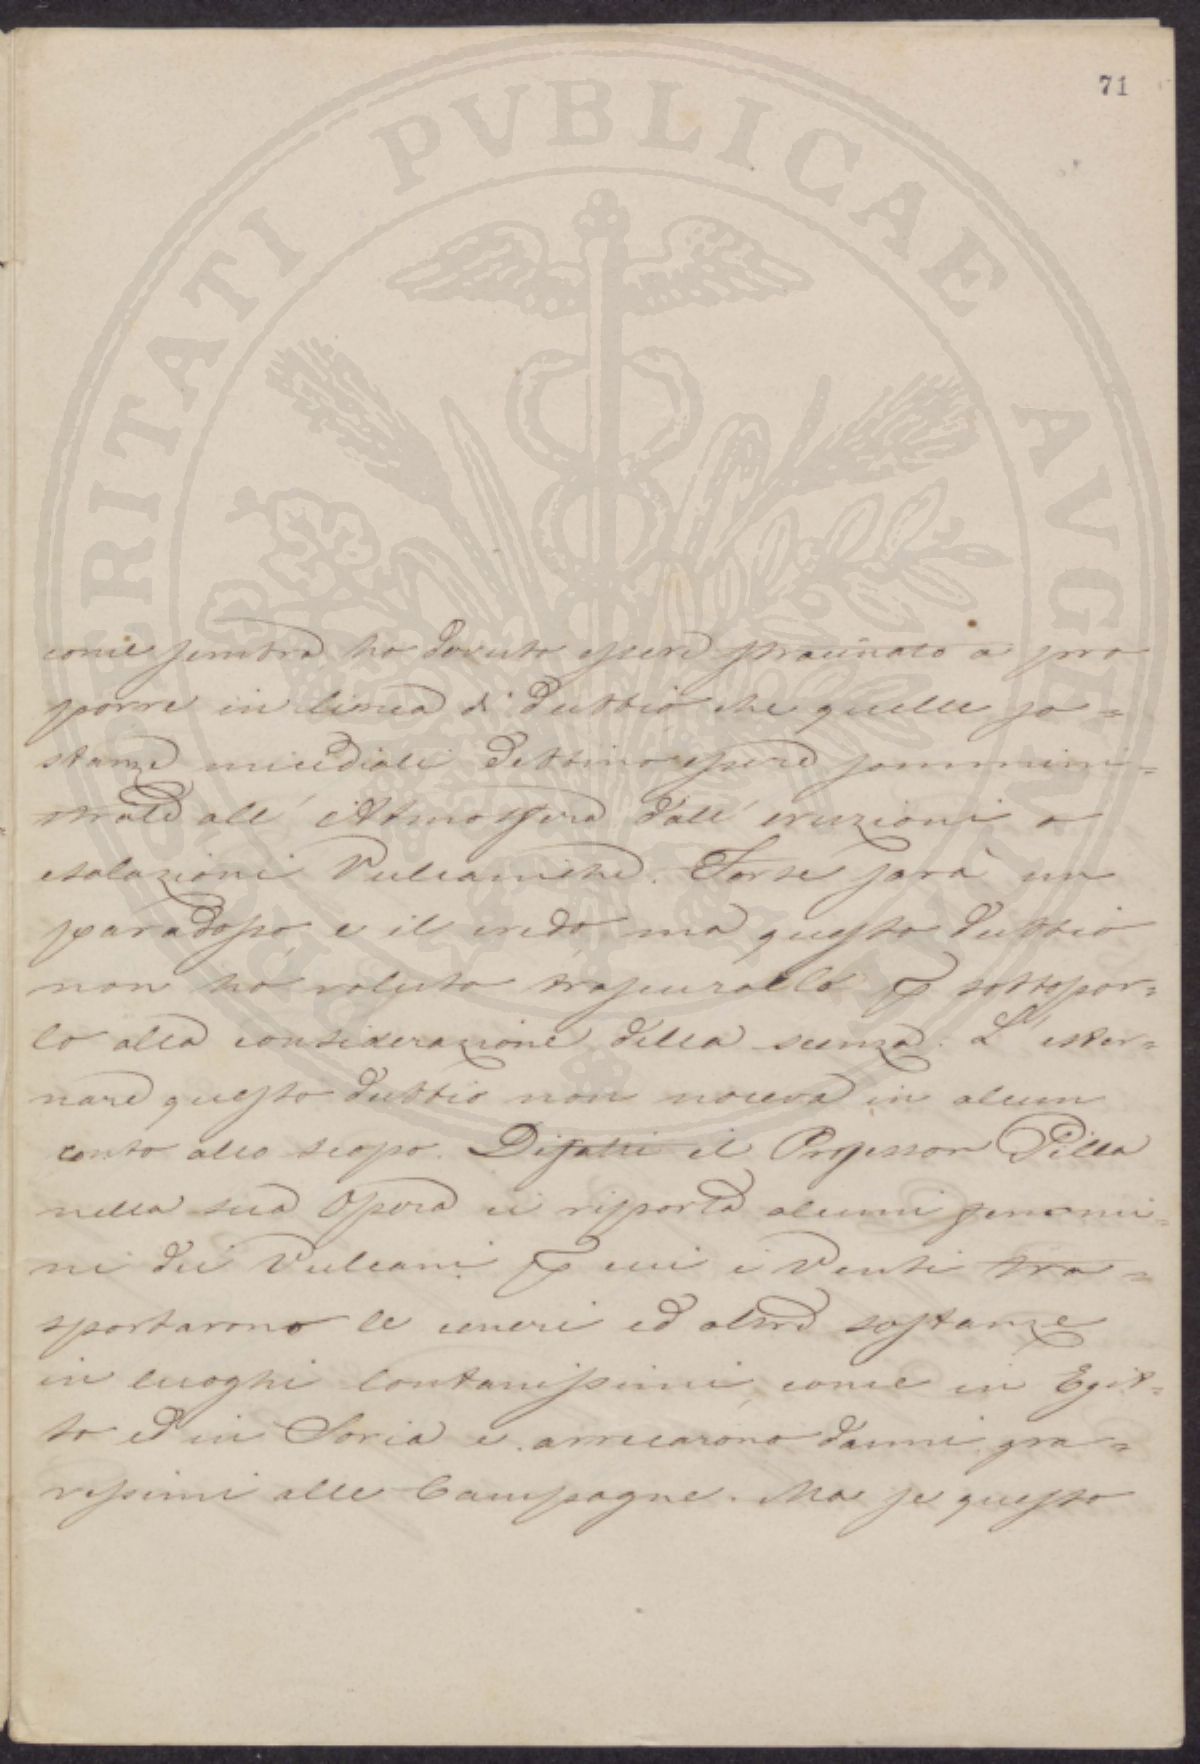 71
PROSPERITATI PVBLICAE AVGENDAE
come sembra ho dovuto essere strascinato a pro
porre in linea di dubbio che quelle so=
stanze micidiali debbino essere sommini=
strate all' Atmosfera dall' eruzioni o
esalazioni Vulcaniche. Forse sarà un
paradosso, e il credo, ma questo dubbio
non hó voluto trascurallo p sottopor=
lo alla considerazione della scienza. L' ester=
nare questo dubbio non noceva in alcun
conto allo scopo. Difatti il Professor Pilla
nella sua Opera ci riporta alcuni fenomi=
ni dei Vulcani p cui i Venti tra=
sportarono le ceneri ed altre sostanze
in luoghi lontanissimi, come in Egit=
to ed in Soria e arrecarono danni gra=
vissimi alle Campagne. Ma se questo